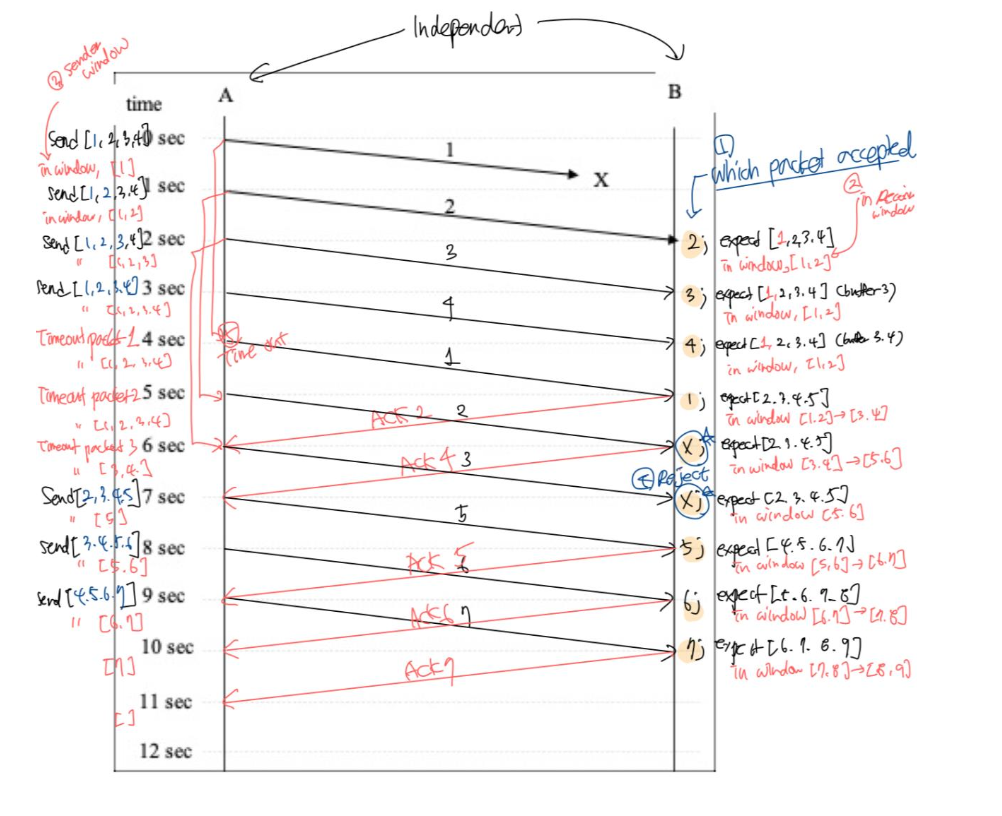 Independent
③ sender
window
time
A
B
Send [1,2,3,4] 0 sec
in window, [1]
send [1,2,3,4] 1 sec
in window, [1,2]
send [1,2,3,4] 2 sec
" [1,2,3]
send [1,2,3,4] 3 sec
" [1,2,3,4]
Timeout packet 1 4 sec
" [1,2,3,4]
Timeout packet 2 5 sec
" [1,2,3,4]
Timeout packet 3 6 sec
" [3,4]
Send [2,3,4,5] 7 sec
" [5]
send [3.4.5.6] 8 sec
" [5.6]
send [4.5.6.7] 9 sec
" [6.7]
10 sec
[7]
11 sec
[ ]
12 sec
1
X
2
3
4
Time out
1
2
Ack 2
3
Ack 4
5
Ack 5
6
Ack 6
7
Ack 7
①
which packet accepted
②
window
2; expect [1,2,3.4]
in window, [1,2]
3; expect [1,2,3.4] (buffer 3)
in window, [1,2]
4; expect [1,2,3.4] (buffer 3.4)
in window, [1,2]
1; expect [2.3.4.5]
in window [1.2]→[3.4]
X; expect [2.3.4.5]
in window [3.4]→[5.6]
④ Reject
X; expect [2.3.4.5]
in window [5.6]
5; expect [4.5.6.7]
in window [5,6]→[6.7]
6; expect [5.6.7.8]
in window [6.7]→[7.8]
7; expect [6.7.8.9]
in window [7.8]→[8,9]